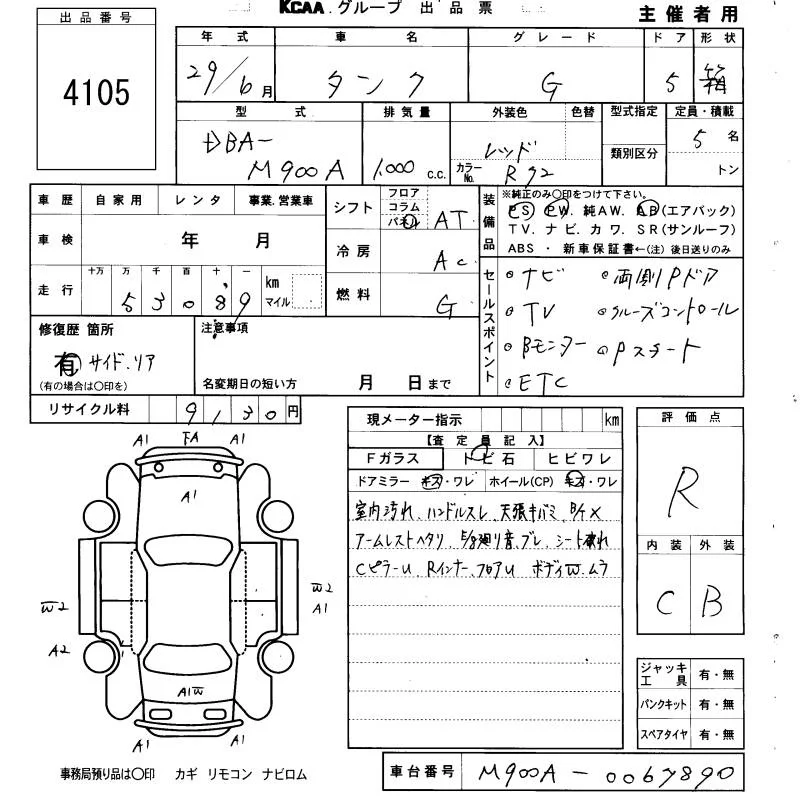 KCAA.グループ 出品票
主催者用
出品番号
4105
年式 車名 グレード ドア 形状
29/6月 タンク G 5 箱
型式 排気量 外装色 色替 型式指定 定員・積載
DBA-
M900A 1,000 c.c. レッド
カラーNo. R92
類別区分
5名
トン
車歴 自家用 レンタ 事業.営業車
車検 年 月
走行 十万 万 千 百 十 一
53089 km マイル
シフト フロア コラム パネル AT
冷房 Ac
燃料 G
装備品
※純正のみ○印をつけて下さい。
PS. PW. 純AW. AB(エアバック)
TV. ナビ. カワ. SR(サンルーフ)
ABS ・ 新車保証書←(注) 後日送りのみ
セールスポイント
ナビ 両側Pドア
TV クルーズコントロール
Bモニター Pスタート
ETC
修復歴 箇所
有 サイド.リア
(有の場合は○印を)
注意事項
名変期日の短い方 月 日まで
リサイクル料 9130円
現メーター指示 km
【査定員記入】
Fガラス トビ石 ヒビワレ
ドアミラー キズ・ワレ ホイール(CP) キズ・ワレ
室内汚れ、ハンドルスレ、天張キバミ、
アームレストヘタリ 廻り音、ブレ、シート
CピラーU、Rインナー、フロアU ボディW.ムラ
評価点
R
内装 外装
C B
A1 FA A1
A1
W2
W2
A1
A2
A1W
A1 A1
ジャッキ工具 有・無
パンクキット 有・無
スペアタイヤ 有・無
事務局預り品は○印 カギ リモコン ナビロム
車台番号 M900A-0067890